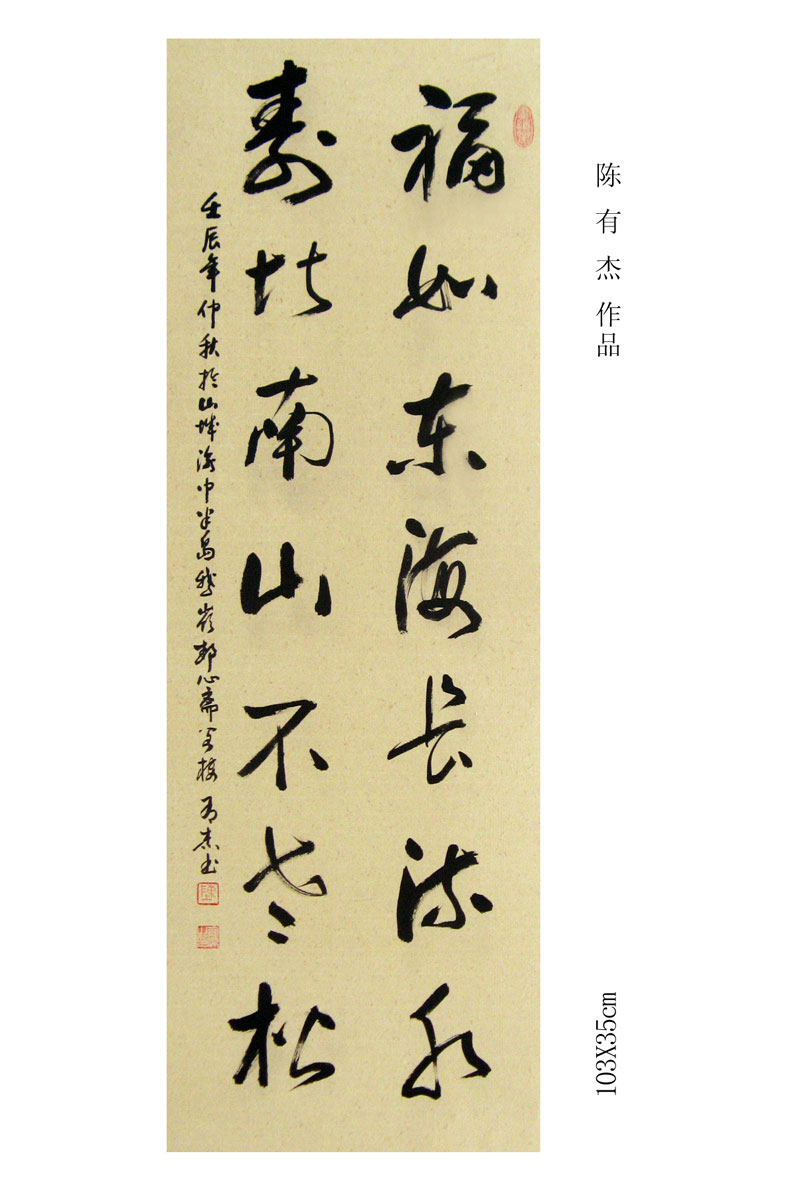 陈有杰作品
103X35cm
福如东海长流水
寿比南山不老松
壬辰年仲秋於山城渝中半岛鹅岭静心斋 有杰书